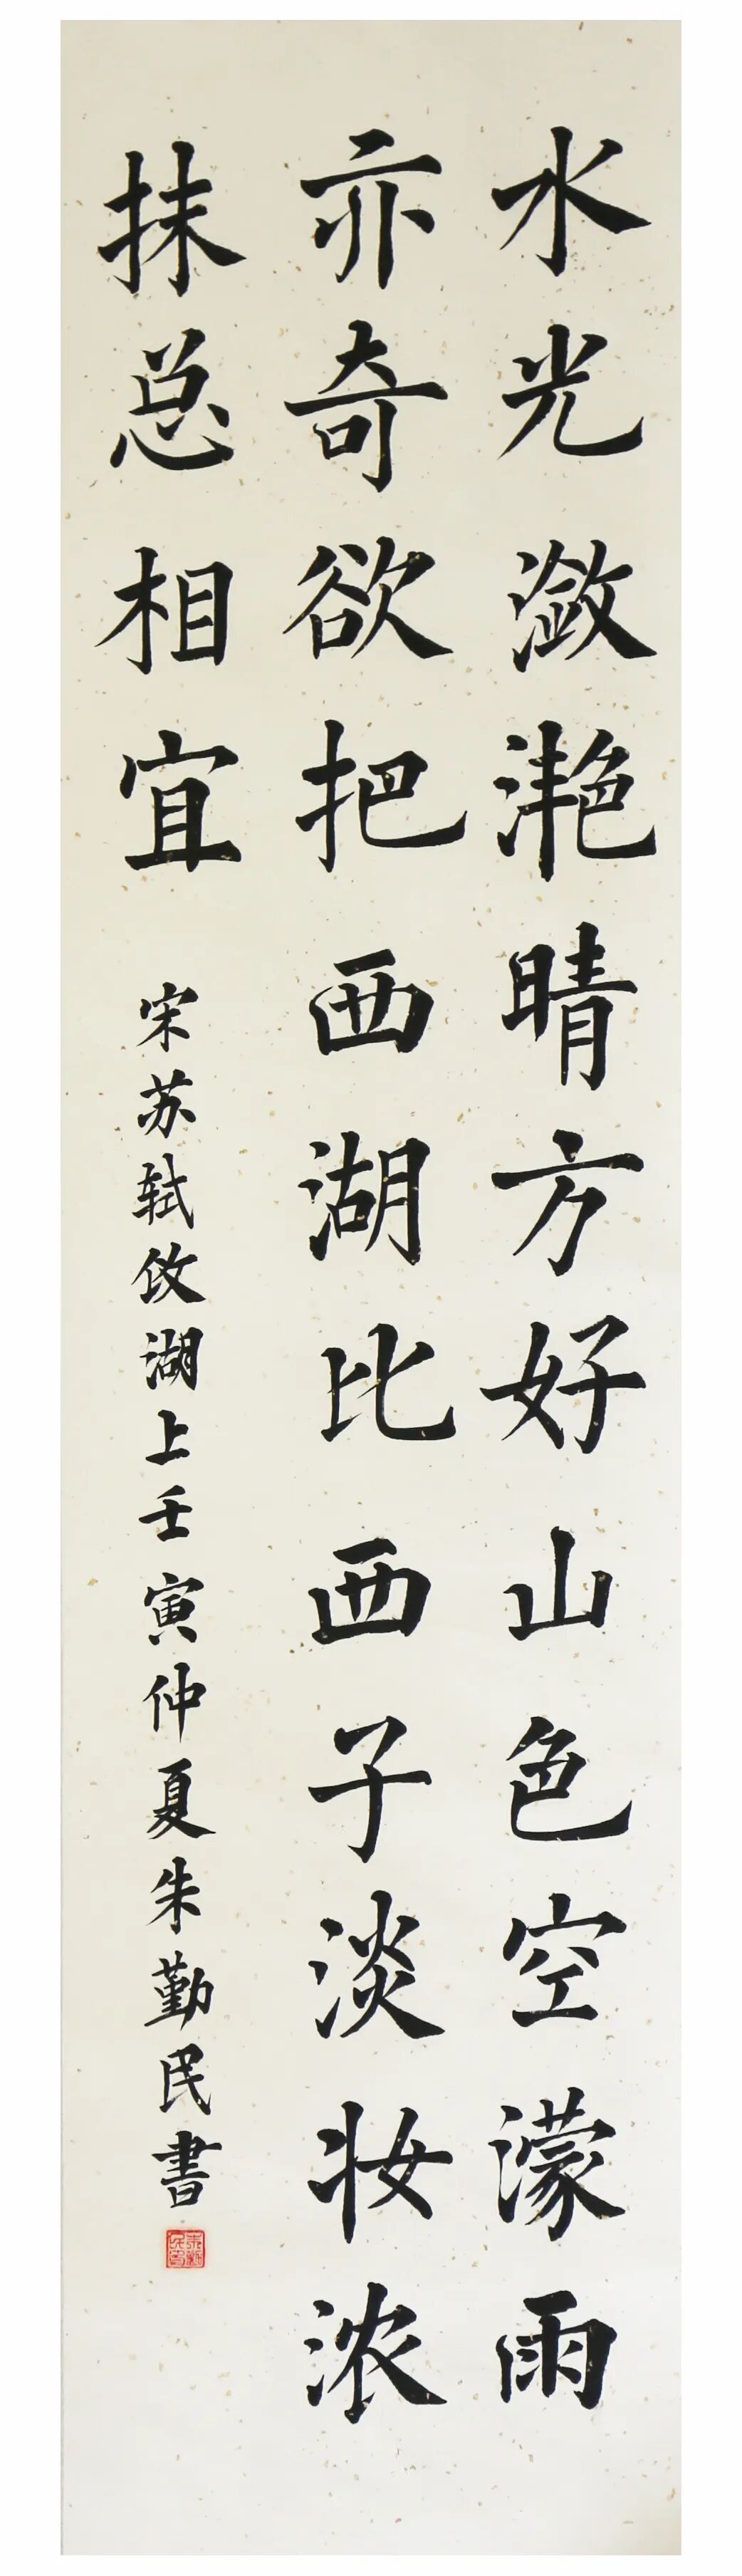 水光潋滟晴方好山色空濛雨
亦奇欲把西湖比西子淡妆浓
抹总相宜
宋苏轼饮湖上壬寅仲夏朱勤民書